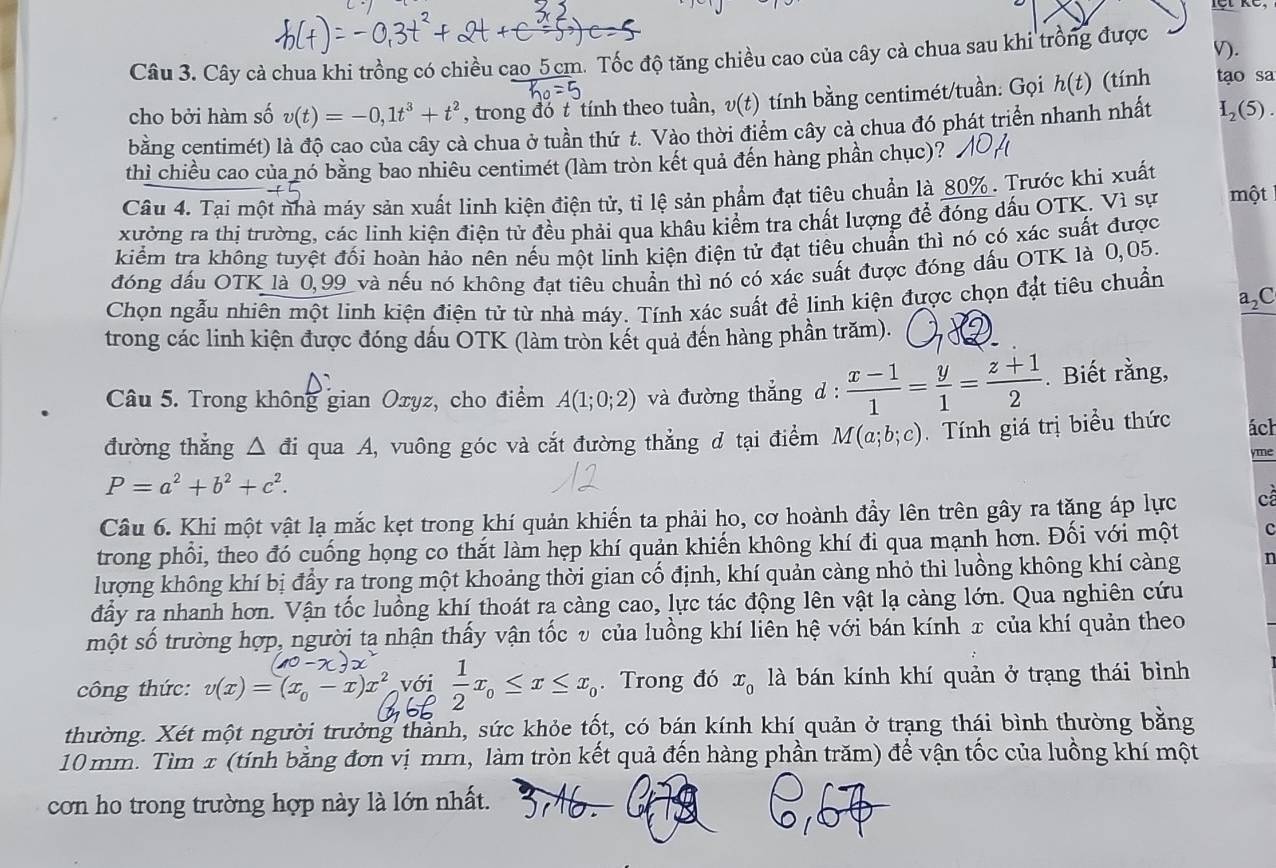 h(t) = -0,3t² + 2t + c
Câu 3. Cây cà chua khi trồng có chiều cao 5 cm. Tốc độ tăng chiều cao của cây cà chua sau khi trồng được
V).
h₀=5
cho bởi hàm số v(t) = -0,1t³ + t², trong đó t tính theo tuần, v(t) tính bằng centimét/tuần. Gọi h(t) (tính
tạo sa
bằng centimét) là độ cao của cây cà chua ở tuần thứ t. Vào thời điểm cây cà chua đó phát triển nhanh nhất
I₂(5).
thì chiều cao của nó bằng bao nhiêu centimét (làm tròn kết quả đến hàng phần chục)?
+5
Câu 4. Tại một nhà máy sản xuất linh kiện điện tử, tỉ lệ sản phẩm đạt tiêu chuẩn là 80%. Trước khi xuất
một
xưởng ra thị trường, các linh kiện điện tử đều phải qua khâu kiểm tra chất lượng để đóng dấu OTK. Vì sự
kiểm tra không tuyệt đối hoàn hảo nên nếu một linh kiện điện tử đạt tiêu chuẩn thì nó có xác suất được
đóng dấu OTK là 0,99 và nếu nó không đạt tiêu chuẩn thì nó có xác suất được đóng dấu OTK là 0,05.
Chọn ngẫu nhiên một linh kiện điện tử từ nhà máy. Tính xác suất để linh kiện được chọn đạt tiêu chuẩn
a₂C
trong các linh kiện được đóng dấu OTK (làm tròn kết quả đến hàng phần trăm).
Câu 5. Trong không gian Oxyz, cho điểm A(1;0;2) và đường thẳng d : (x-1)/1 = y/1 = (z+1)/2. Biết rằng,
đường thẳng Δ đi qua A, vuông góc và cắt đường thẳng d tại điểm M(a;b;c). Tính giá trị biểu thức
ách
yme
P = a² + b² + c².
12
Câu 6. Khi một vật lạ mắc kẹt trong khí quản khiến ta phải ho, cơ hoành đẩy lên trên gây ra tăng áp lực
cả
trong phổi, theo đó cuống họng co thắt làm hẹp khí quản khiến không khí đi qua mạnh hơn. Đối với một
c
lượng không khí bị đẩy ra trong một khoảng thời gian cố định, khí quản càng nhỏ thì luồng không khí càng
n
đẩy ra nhanh hơn. Vận tốc luồng khí thoát ra càng cao, lực tác động lên vật lạ càng lớn. Qua nghiên cứu
một số trường hợp, người ta nhận thấy vận tốc v của luồng khí liên hệ với bán kính x của khí quản theo
(10-x)x²
công thức: v(x) = (x₀ - x)x² với 1/2 x₀ ≤ x ≤ x₀. Trong đó x₀ là bán kính khí quản ở trạng thái bình
thường. Xét một người trưởng thành, sức khỏe tốt, có bán kính khí quản ở trạng thái bình thường bằng
10mm. Tìm x (tính bằng đơn vị mm, làm tròn kết quả đến hàng phần trăm) để vận tốc của luồng khí một
cơn ho trong trường hợp này là lớn nhất. 6,67